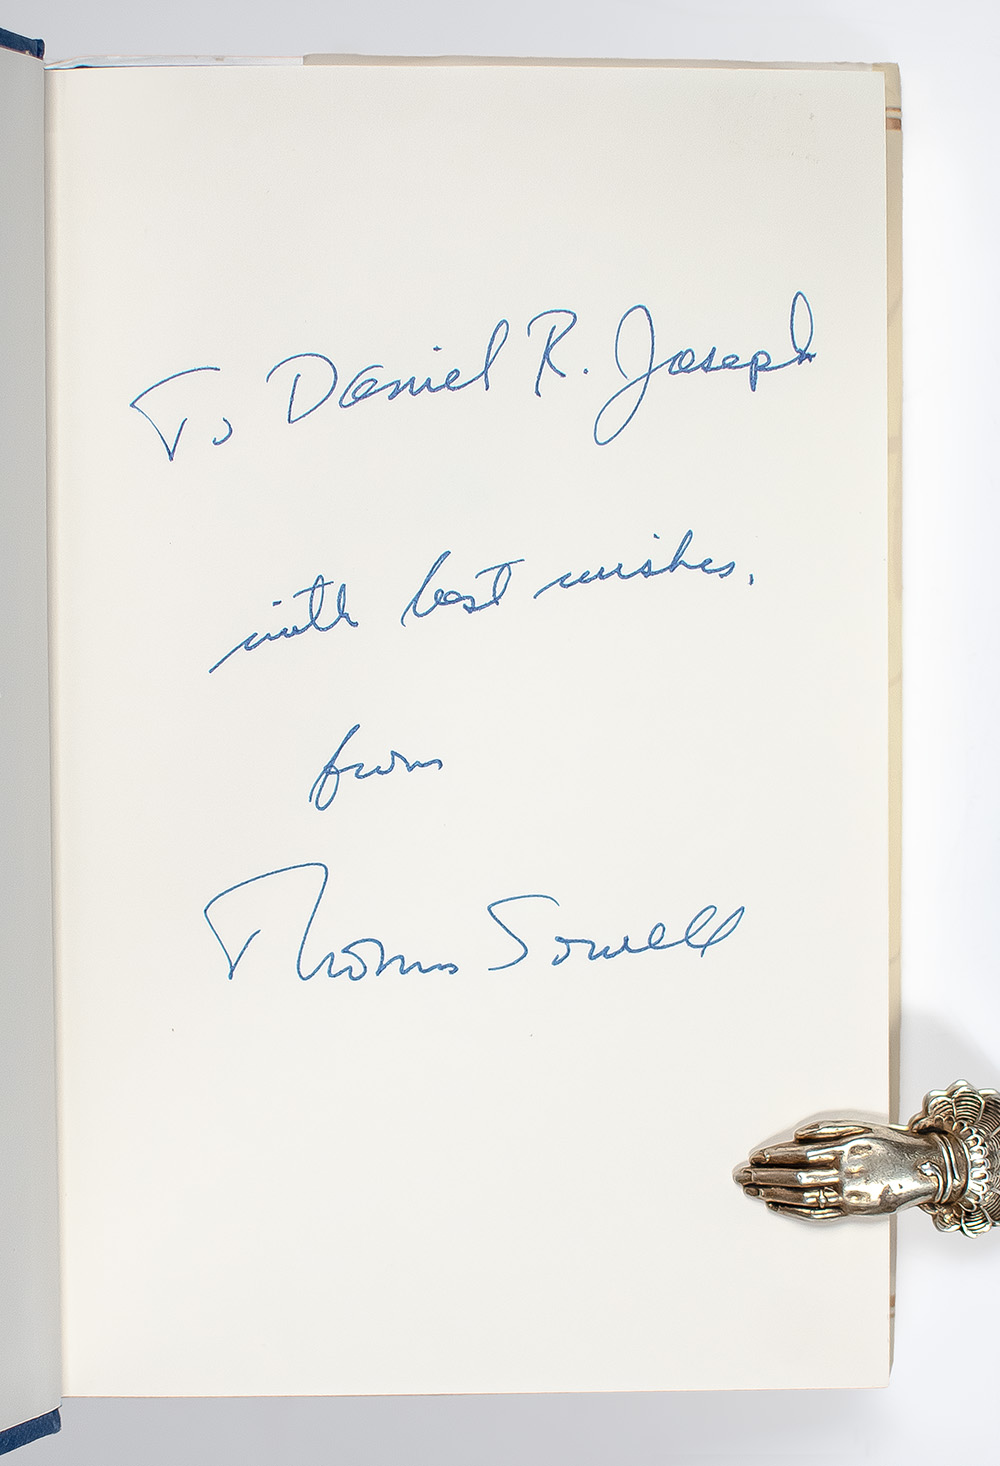 To Daniel R. Joseph
with best wishes,
from
Thomas Sowell